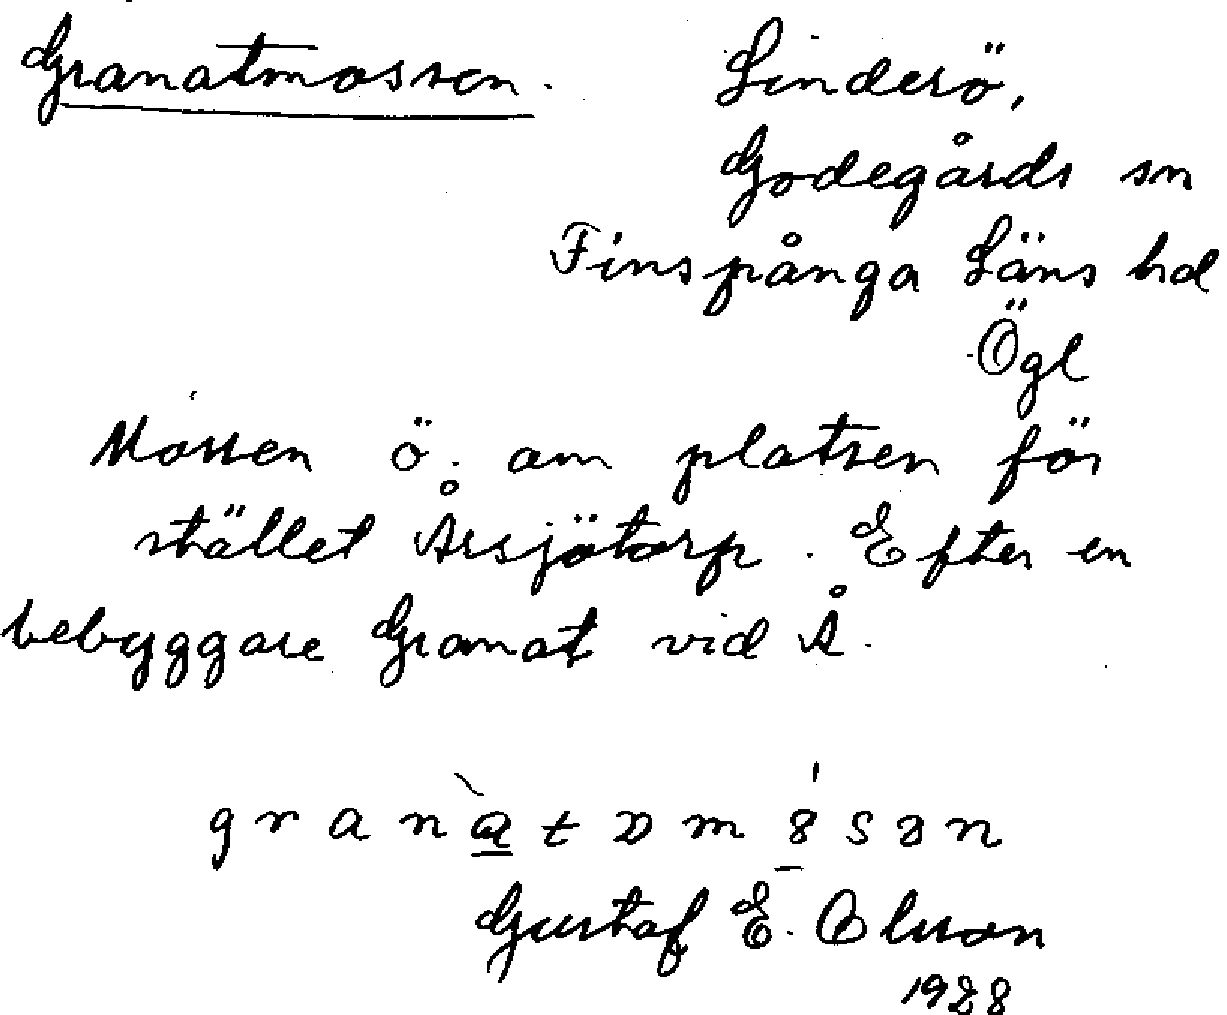 Granatmossen. Linderö,
Godegårds sn
Finspånga Läns hd
Ögl
Mossen ö. om platsen för
stället Årsjötorp. Efter en
bebyggare Granat vid Å.
Gustaf E. Olsson
1928